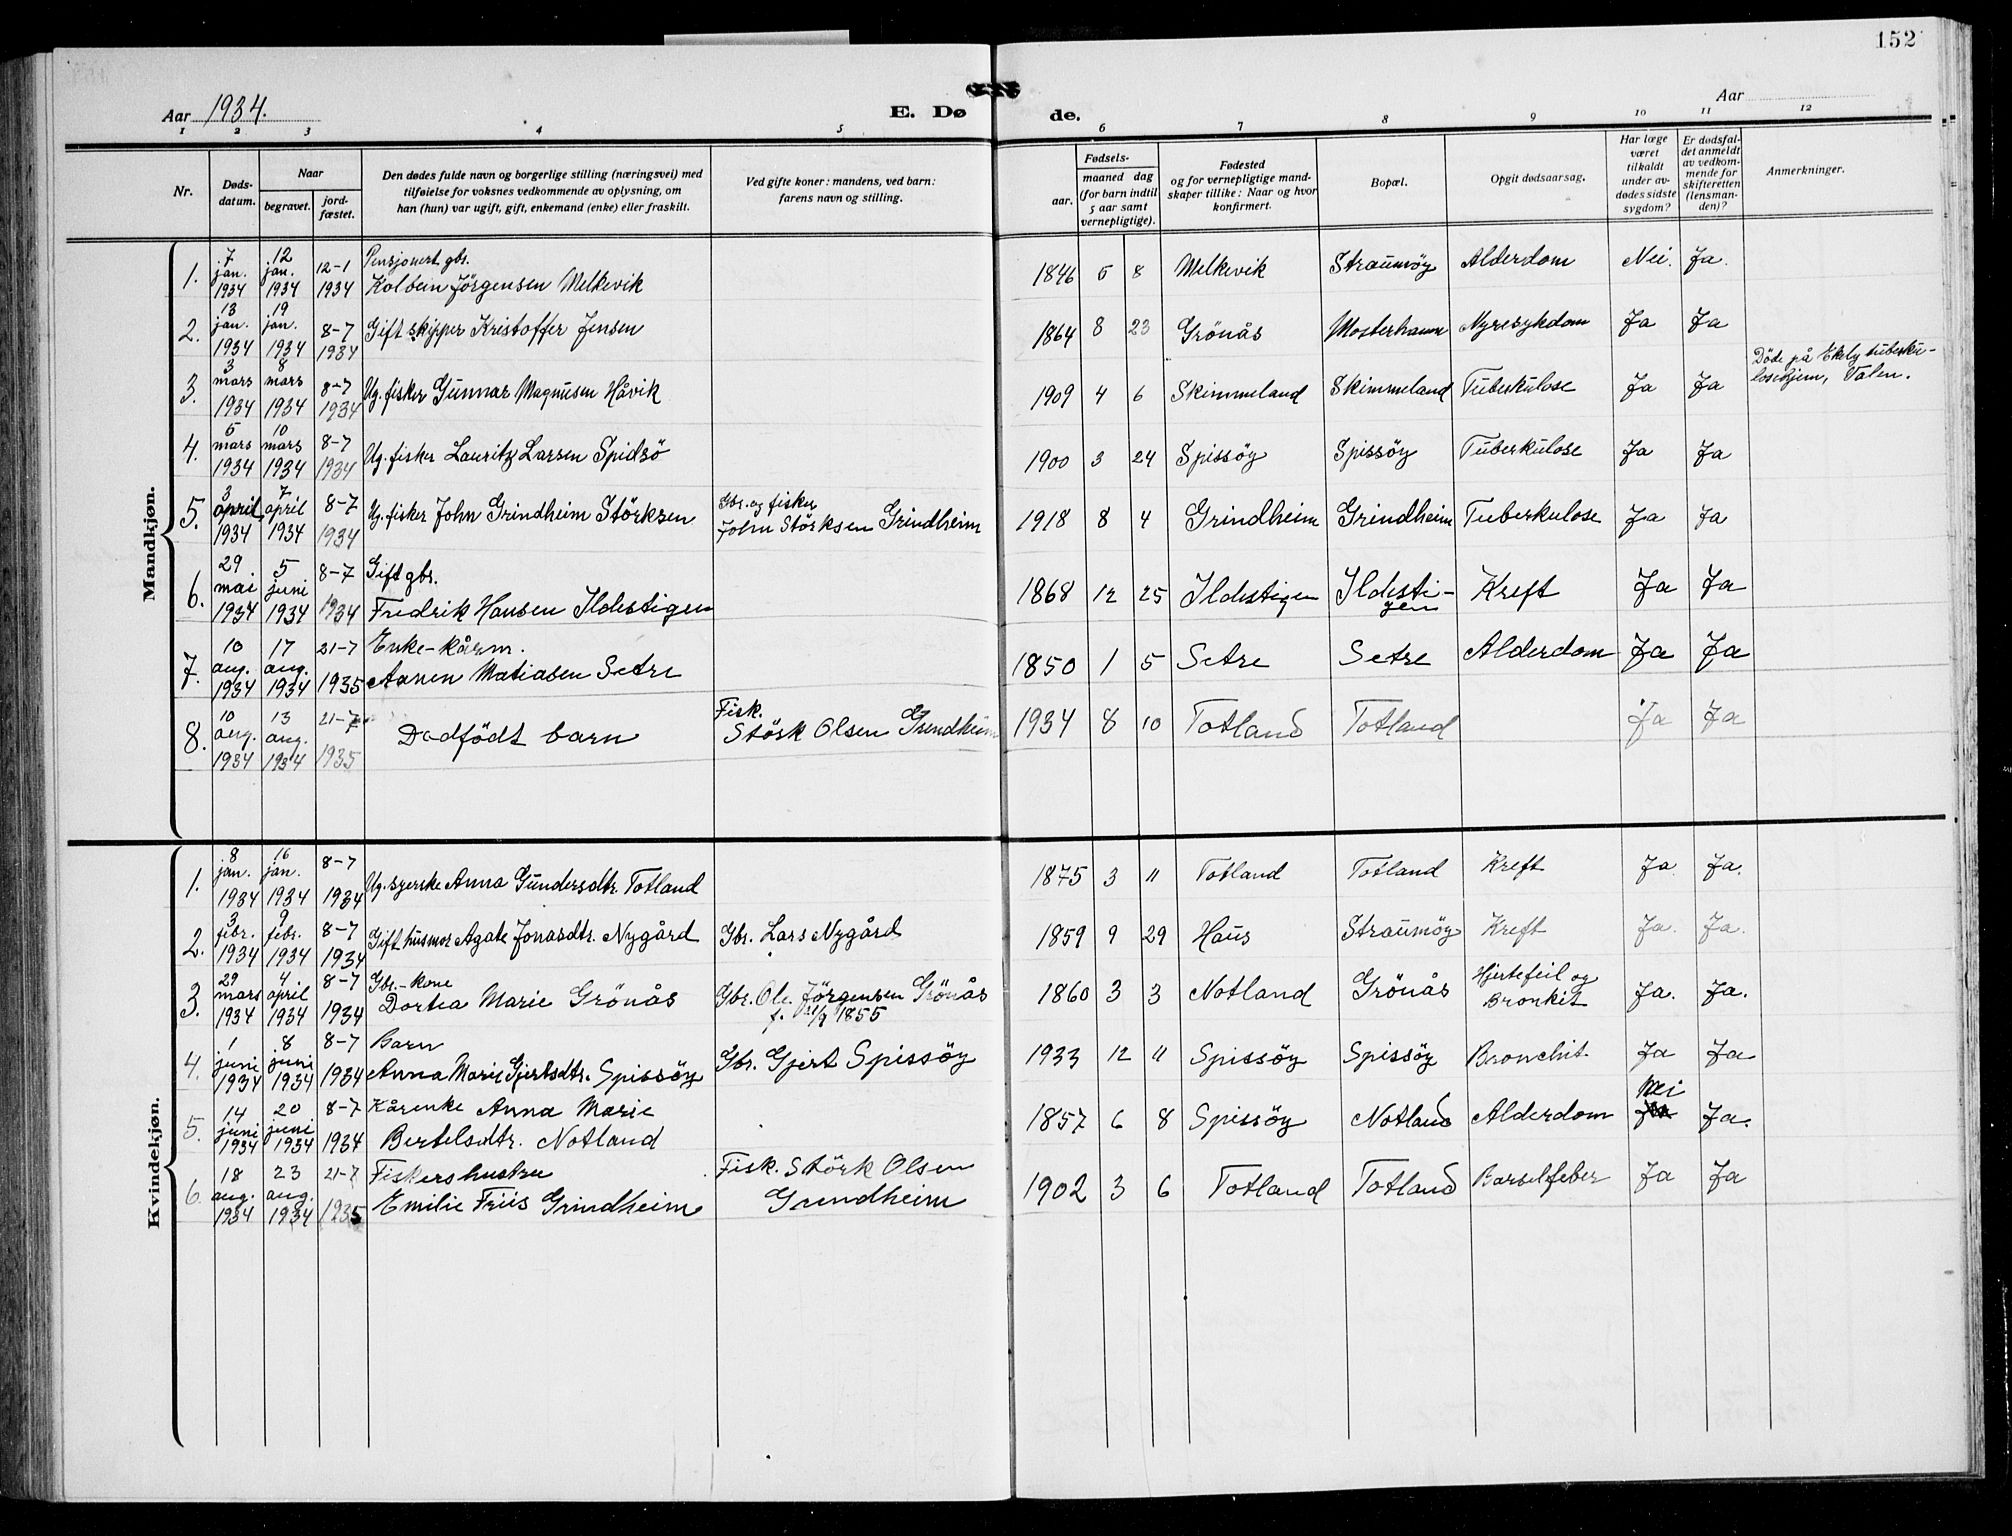 152
Aar 1934.
E. Dø de.
Aar
1 2 3 4 5 6 7 8 9 10 11 12
Nr.
Døds-
datum.
Naar
begravet.
jord-
fæstet.
Den dødes fulde navn og borgerlige stilling (næringsvei) med
tilføielse for voksnes vedkommende av oplysning, om
han (hun) var ugift, gift, enkemand (enke) eller fraskilt.
Ved gifte koner: mandens, ved barn:
farens navn og stilling.
aar.
Fødsels-
maaned dag
(for barn indtil
5 aar samt
vernepligtige).
Fødested
og for vernepligtige mand-
skaper tillike: Naar og hvor
konfirmert.
Bopæl.
Opgit dødsaarsag.
Har læge
været
tilkaldt
under av-
dødes sidste
sygdom?
Er dødsfal-
det anmeldt
av vedkom-
mende for
skifteretten
(lensman-
den)?
Anmerkninger.
Mandkjøn.
1. 7 jan. 1934 12 jan. 1934 12-1 1934 Pensjonert gbr. Kolbein Jörgensen Melkevik 1846 5 8 Melkevik Straumöy Alderdom Nei. Ja.
2. 13 jan. 1934 19 jan. 1934 8-7 1934 Gift skipper Kristoffer Jensen 1864 8 23 Grönås Mosterhamn Nyresykdom Ja Ja
3. 3 mars 1934 8 mars 1934 8-7 1934 Ug. fisker Gunnar Magnusen Håvik 1909 4 6 Skimmeland Skimmeland Tuberkulose Ja Ja Döde på Ekely tuberku-
losehjem, Valen.
4. 5 mars 1934 10 mars 1934 8-7 1934 Ug. fisker Lauritz Larsen Spidsö 1900 3 24 Spissöy Spissöy Tuberkulose Ja Ja
5. 3 april 1934 7 april 1934 8-7 1934 Ug. fisker John Grindheim Störksen Gbr. og fisker John Störksen Grindheim 1918 8 4 Grindheim Grindheim Tuberkulose Ja Ja
6. 29 mai 1934 5 juni 1934 8-7 1934 Gift gbr. Fredrik Hansen Ildestigen 1868 12 25 Ildestigen Ildesti-
gen Kreft Ja Ja
7. 10 aug. 1934 17 aug. 1934 21-7 1935 Enke-kårm. Aanen Matiasen Setre 1850 1 5 Setre Setre Alderdom Ja Ja
8. 10 aug. 1934 13 aug. 1934 21-7 1935 Dødfödt barn Fisk. Störk Olsen Grindheim 1934 8 10 Totland Totland Ja Ja
Kvindekjøn.
1. 8 jan. 1934 16 jan. 1934 8-7 1934 Ug. syerske Anna Gundersdtr. Totland 1875 3 11 Totland Totland Kreft Ja Ja.
2. 3 febr. 1934 9 febr. 1934 8-7 1934 Gift husmor Agate Jonasdtr. Nygård Gbr. Lars Nygård 1859 9 29 Haus Straumöy Kreft Ja. Ja.
3. 29 mars 1934 4 april 1934 8-7 1934 Gbr.-kone Dortea Marie Grönås Gbr. Ole Jörgensen Grönås
f. 21/9 1855 1860 3 3 Notland Grönås Hjertefeil og
Bronkit Ja. Ja.
4. 1 juni 1934 8 juni 1934 8-7 1934 Barn Anna Marie Gjertsdtr. Spissöy Gbr. Gjert Spissöy 1933 12 11 Spissöy Spissöy Bronchit. Ja Ja
5. 14 juni 1934 20 juni 1934 8-7 1934 Kårenke Anna Marie
Bertelsdtr. Notland 1857 6 8 Spissöy Notland Alderdom Nei Ja.
6. 18 aug. 1934 23 aug. 1934 21-7 1935 Fiskershustru
Emilie Friis Grindheim Fisk. Störk Olsen
Grindheim 1902 3 6 Totland Totland Barselfeber Ja Ja